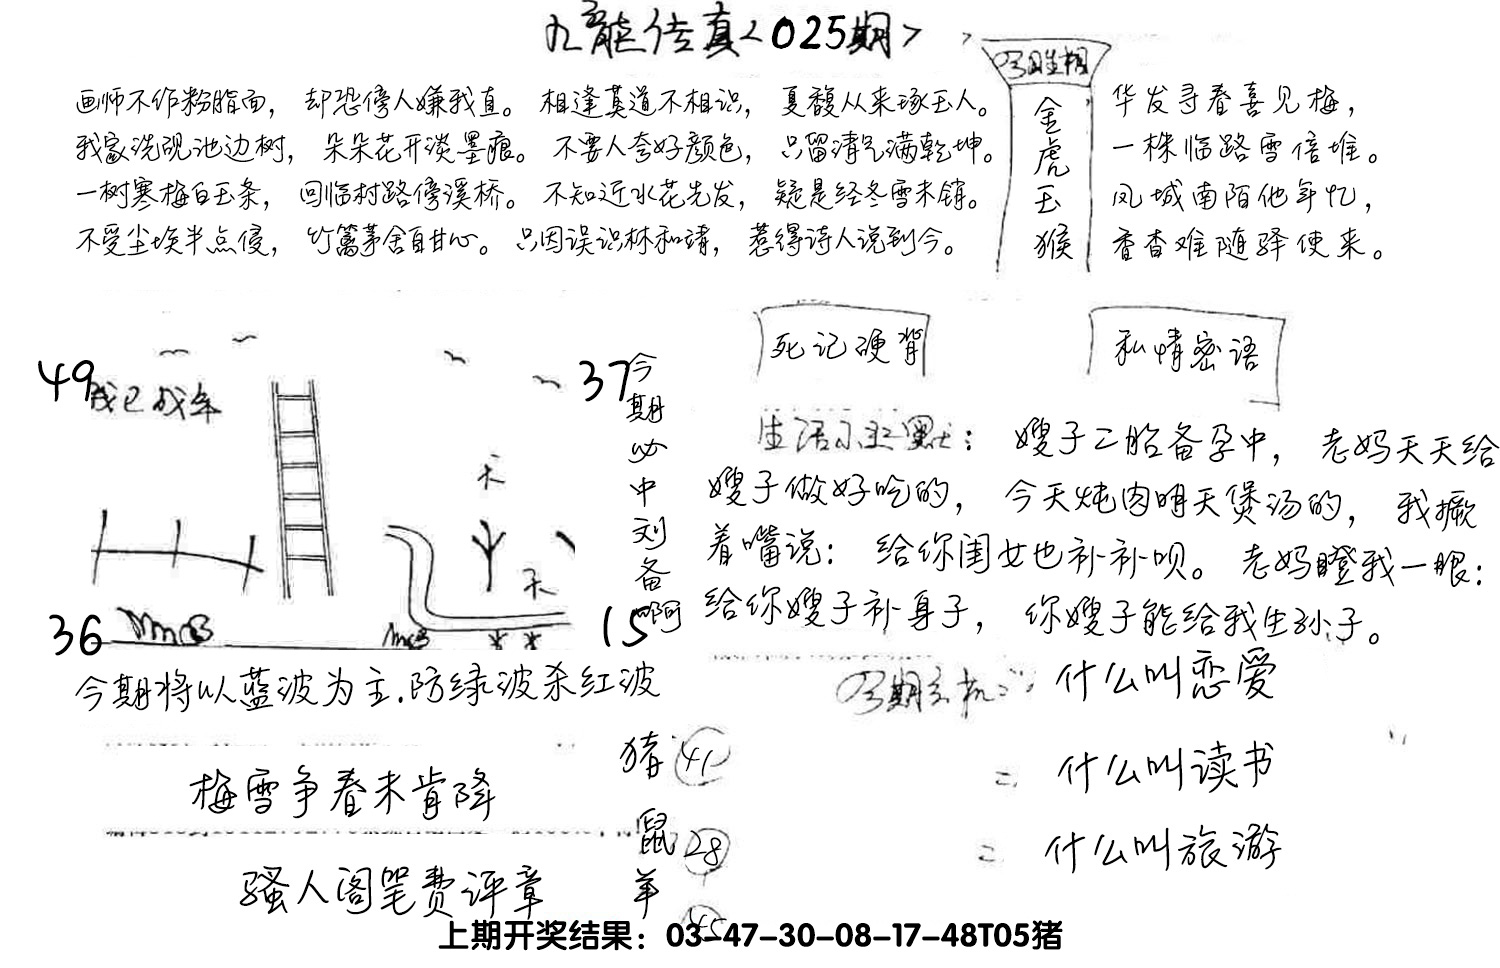 九龙传真<025期>
今日生相
画师不作粉脂面，却恐傍人嫌我直。相逢莫道不相识，夏馥从来琢玉人。
我家洗砚池边树，朵朵花开淡墨痕。不要人夸好颜色，只留清气满乾坤。
一树寒梅白玉条，回临村路傍溪桥。不知近水花先发，疑是经冬雪未销。
不受尘埃半点侵，竹篱茅舍自甘心。只因误识林和靖，惹得诗人说到今。
金虎玉猴
华发寻春喜见梅，
一株临路雪倍堆。
凤城南陌他年忆，
香杳难随驿使来。
49
我已成年
37
36
15
今期必中刘备啊
死记硬背
私情密语
生活小幽默：嫂子二胎备孕中，老妈天天给
嫂子做好吃的，今天炖肉明天煲汤的，我撅
着嘴说：给你闺女也补补呗。老妈瞪我一眼：
给你嫂子补身子，你嫂子能给我生孙子。
今期将以蓝波为主.防绿波杀红波
今期玄机：什么叫恋爱
什么叫读书
什么叫旅游
猪 41
鼠 28
羊 45
梅雪争春未肯降
骚人阁笔费评章
上期开奖结果：03-47-30-08-17-48T05猪